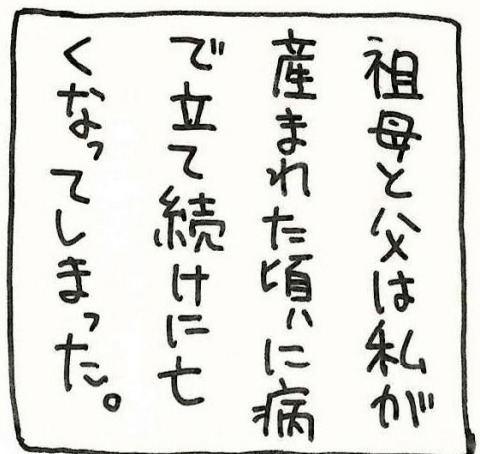 祖母と父は私が
産まれた頃に病
で立て続けに亡
くなってしまった。